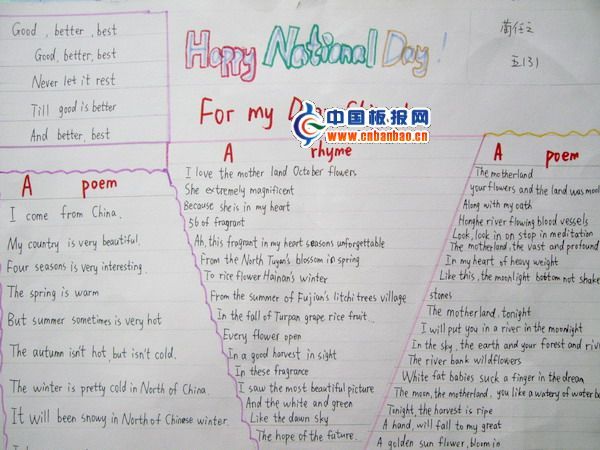 Good, better, best
Good, better, best
Never let it rest
Till good is better
And better, best
Happy National Day!
五131
For my
中国板报网
www.cnbanbao.cn
A poem
I come from China.
My country is very beautiful.
Four seasons is very interesting.
The spring is warm
But summer sometimes is very hot
The autumn isn't hot, but isn't cold.
The winter is pretty cold in North of China.
It will been snowy in North of Chinese winter.
A rhyme
I love the mother land October flowers
She extremely magnificent
Because she is in my heart
56 of fragrant
Ah, this fragrant in my heart seasons unforgettable
From the North Tuyan's blossom in spring
To rice flower Hainan's winter
From the summer of Fujian's litchi trees village
In the fall of Turpan grape rice fruit..
Every flower open
In a good harvest in sight
In these fragrance
I saw the most beautiful picture
And the white and green
Like the dawn sky
The hope of the future.
A poem
The motherland
your flowers and the land was mool
Along with my oath
Honghe river flowing blood vessels
Look, look in on stop in meditation
The motherland, the vast and profound
In my heart of heavy weight
Like this, the moonlight bottom not shake
stones
The motherland, tonight
I will put you in a river in the moonlight
In the sky, the earth and your forest and rive
The river bank wildflowers
White fat babies suck a finger in the dream
The moon, the motherland, you like a watery of water be
Tonight, the harvest is ripe
A hand, will fall to my great
A golden sun flower, bloom in